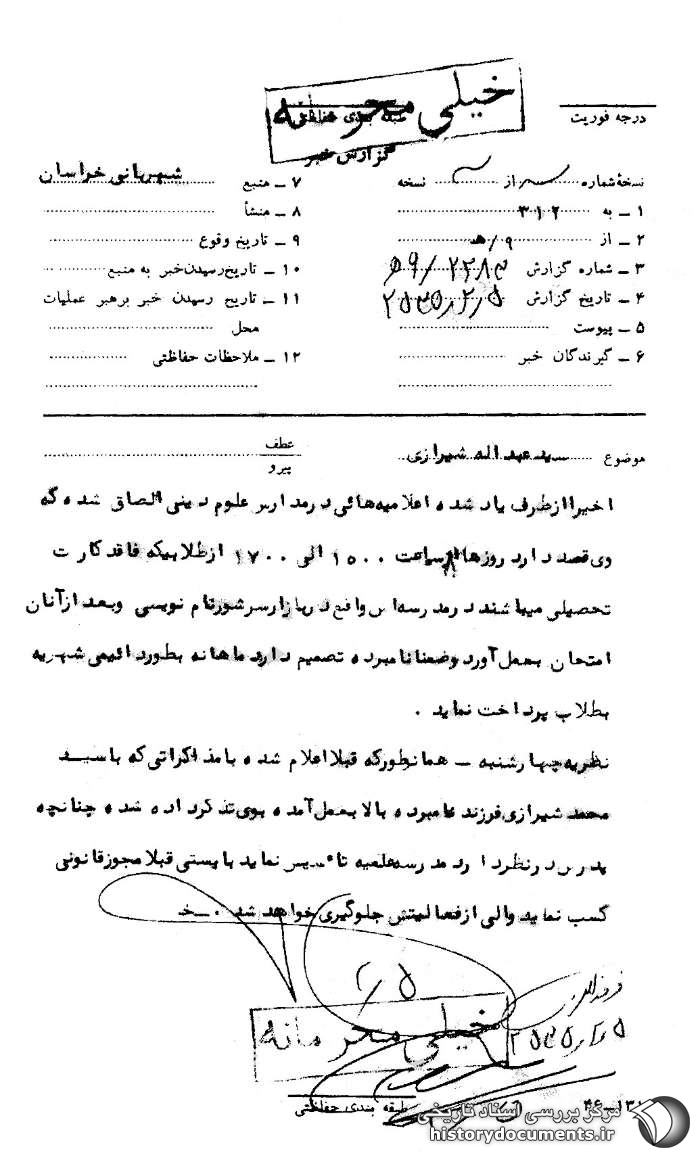 خیلی محرمانه
درجه فوریت
طبقه بندی حفاظتی
گزارش خبر
نسخهٔ شماره از نسخه
۱ – به ۳۱۲
۲ – از ۹/هـ
۳ – شماره گزارش ۲۲۸۳/۹هـ
۴ – تاریخ گزارش ۲۵۳۵/۲/۵
۵ – پیوست
۶ – گیرندگان خبر
۷ – منبع شهربانی خراسان
۸ – منشأ
۹ – تاریخ وقوع
۱۰ – تاریخ رسیدن خبر به منبع
۱۱ – تاریخ رسیدن خبر برهبر عملیات
محل
۱۲ – ملاحظات حفاظتی
موضوع سید عبداله شیرازی
عطف
پیرو
اخیرا از طرف یاد شده اعلامیه‌هائی در مدارس علوم دینی الصاق شده که
وی قصد دارد روزها از ساعت ۱۵۰۰ الی ۱۷۰۰ از طلابیکه فاقد کارت
تحصیلی میباشند در مدرسه‌اس واقع در بازار سرشور نام نویسی وبعد از آنان
امتحان بعمل آورد وضمنا نامبرده تصمیم دارد ماهانه بطور دائیمی شهریه
بطلاب پرداخت نماید .
نظریه چهارشنبه – همانطور که قبلا اعلام شده با مذاکراتی که با سید
محمد شیرازی فرزند نامبرده بالا بعمل آمده بوی تذکر داده شده چنانچه
پدرس در نظر دارد مدرسه علمیه تاسیس نماید بایستی قبلا مجوز قانونی
کسب نماید والی از فعالیتش جلوگیری خواهد شد . خ
۲/۵
۲۵۳۵/۲/۵
خیلی محرمانه
طبقه بندی حفاظتی
مرکز بررسی اسناد تاریخی
historydocuments.ir